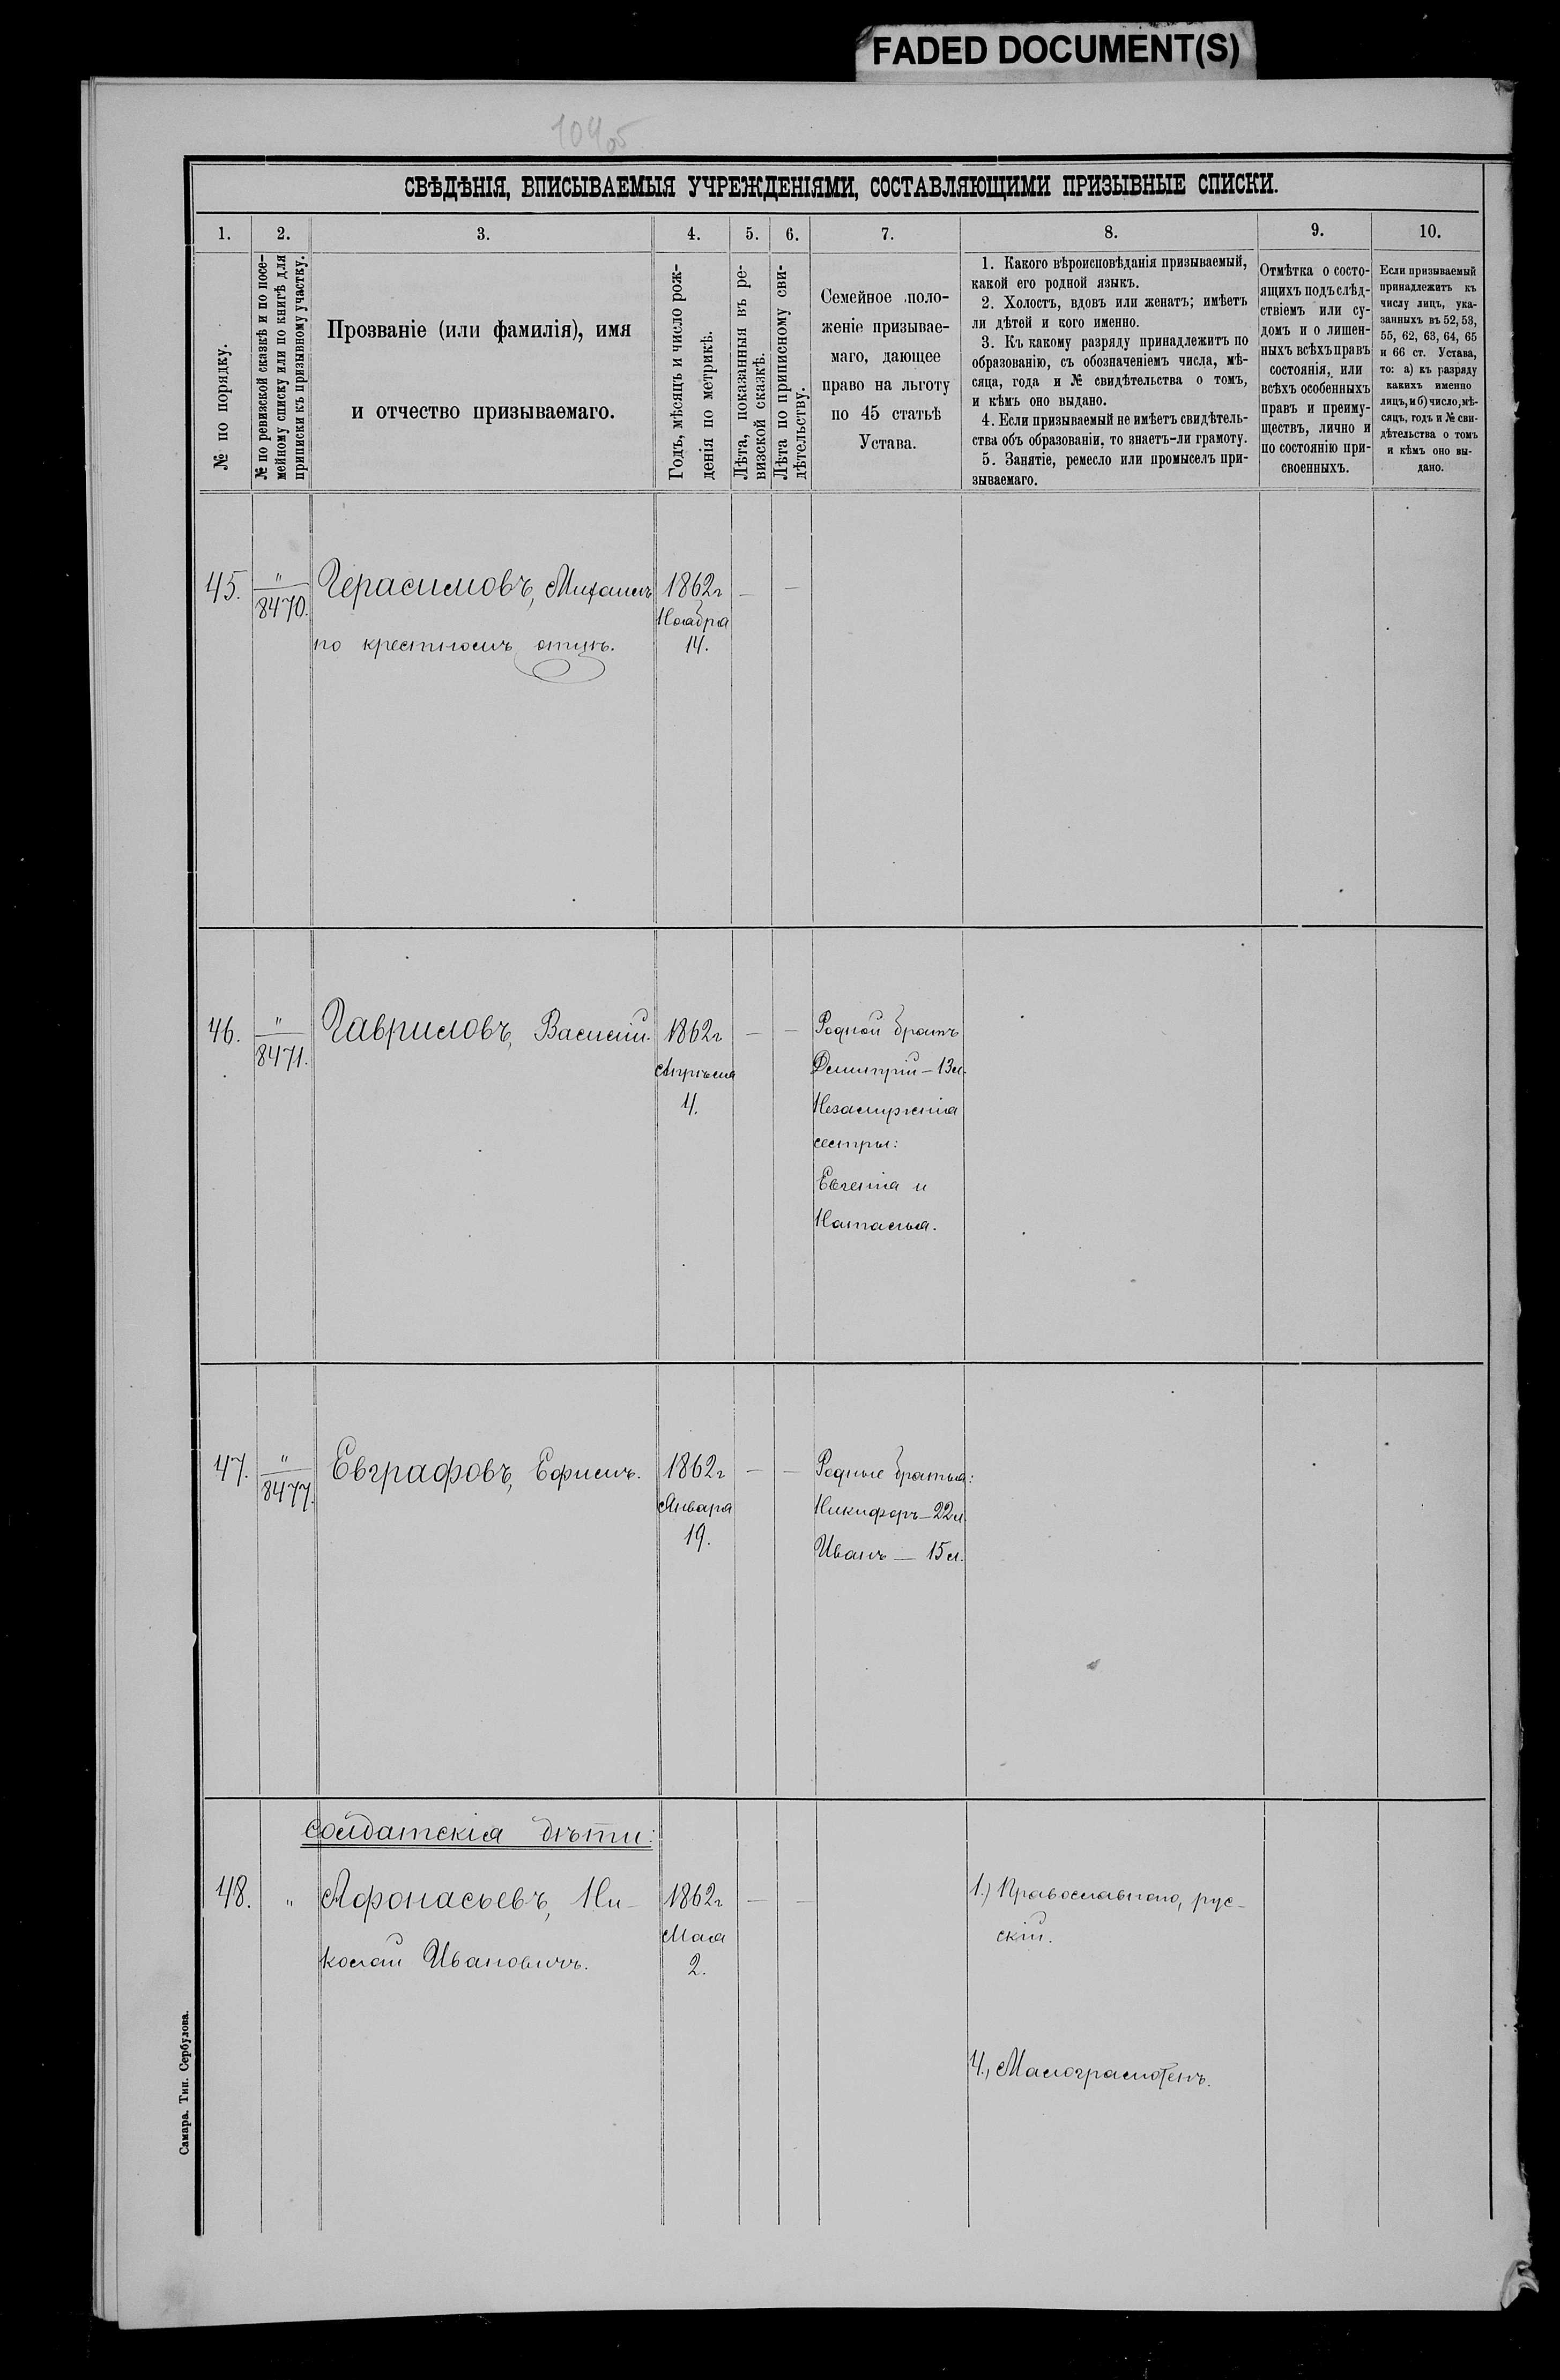 FADED DOCUMENT(S)
СВѢДѢНІЯ, ВПИСЫВАЕМЫЯ УЧРЕЖДЕНІЯМИ, СОСТАВЛЯЮЩИМИ ПРИЗЫВНЫЕ СПИСКИ.
1. 2. 3. 4. 5. 6. 7. 8. 9. 10.
№ по порядку.
№ по ревизской сказкѣ и по посе-
мейному списку или по книгѣ для
приписки къ призывному участку.
Прозваніе (или фамилія), имя
и отчество призываемаго.
Годъ, мѣсяцъ и число рож-
денія по метрикѣ.
Лѣта, показанныя въ ре-
визской сказкѣ.
Лѣта по приписному сви-
дѣтельству.
Семейное поло-
женіе призывае-
маго, дающее
право на льготу
по 45 статьѣ
Устава.
1. Какого вѣроисповѣданія призываемый,
какой его родной языкъ.
2. Холостъ, вдовъ или женатъ; имѣетъ
ли дѣтей и кого именно.
3. Къ какому разряду принадлежитъ по
образованію, съ обозначеніемъ числа, мѣ-
сяца, года и № свидѣтельства о томъ,
и кѣмъ оно выдано.
4. Если призываемый не имѣетъ свидѣтель-
ства объ образованіи, то знаетъ-ли грамоту.
5. Занятіе, ремесло или промыселъ при-
зываемаго.
Отмѣтка о состо-
ящихъ подъ слѣд-
ствіемъ или су-
домъ и о лишен-
ныхъ всѣхъ правъ
состоянія, или
всѣхъ особенныхъ
правъ и преиму-
ществъ, лично и
по состоянію при-
своенныхъ.
Если призываемый
принадлежитъ къ
числу лицъ, ука-
занныхъ въ 52, 53,
55, 62, 63, 64, 65
и 66 ст. Устава,
то: а) къ разряду
какихъ именно
лицъ, и б) число, мѣ-
сяцъ, годъ и № сви-
дѣтельства о томъ
и кѣмъ оно вы-
дано.
45.
"
8470.
Герасимовъ, Михаилъ
по крестномъ отцѣ.
1862г
Ноября
14.
— —
46.
"
8471.
Гавриловъ, Василій.
1862г
Апрѣля
4.
— —
Родной братъ
Димитрій — 13 л.
Незамужнія
сестры:
Евгенія и
Наталья.
47.
"
8477.
Евграфовъ, Ефимъ.
1862г
Января
19.
— —
Родные братья:
Никифоръ — 22 л.
Иванъ — 15 л.
Солдатскія дѣти:
48.
"
Афонасьевъ, Ни-
колай Ивановичъ.
1862г
Мая
2.
— —
1.) Православнаго, рус-
скій.
4., Малограмотенъ.
Самара. Тип. Сербулова.